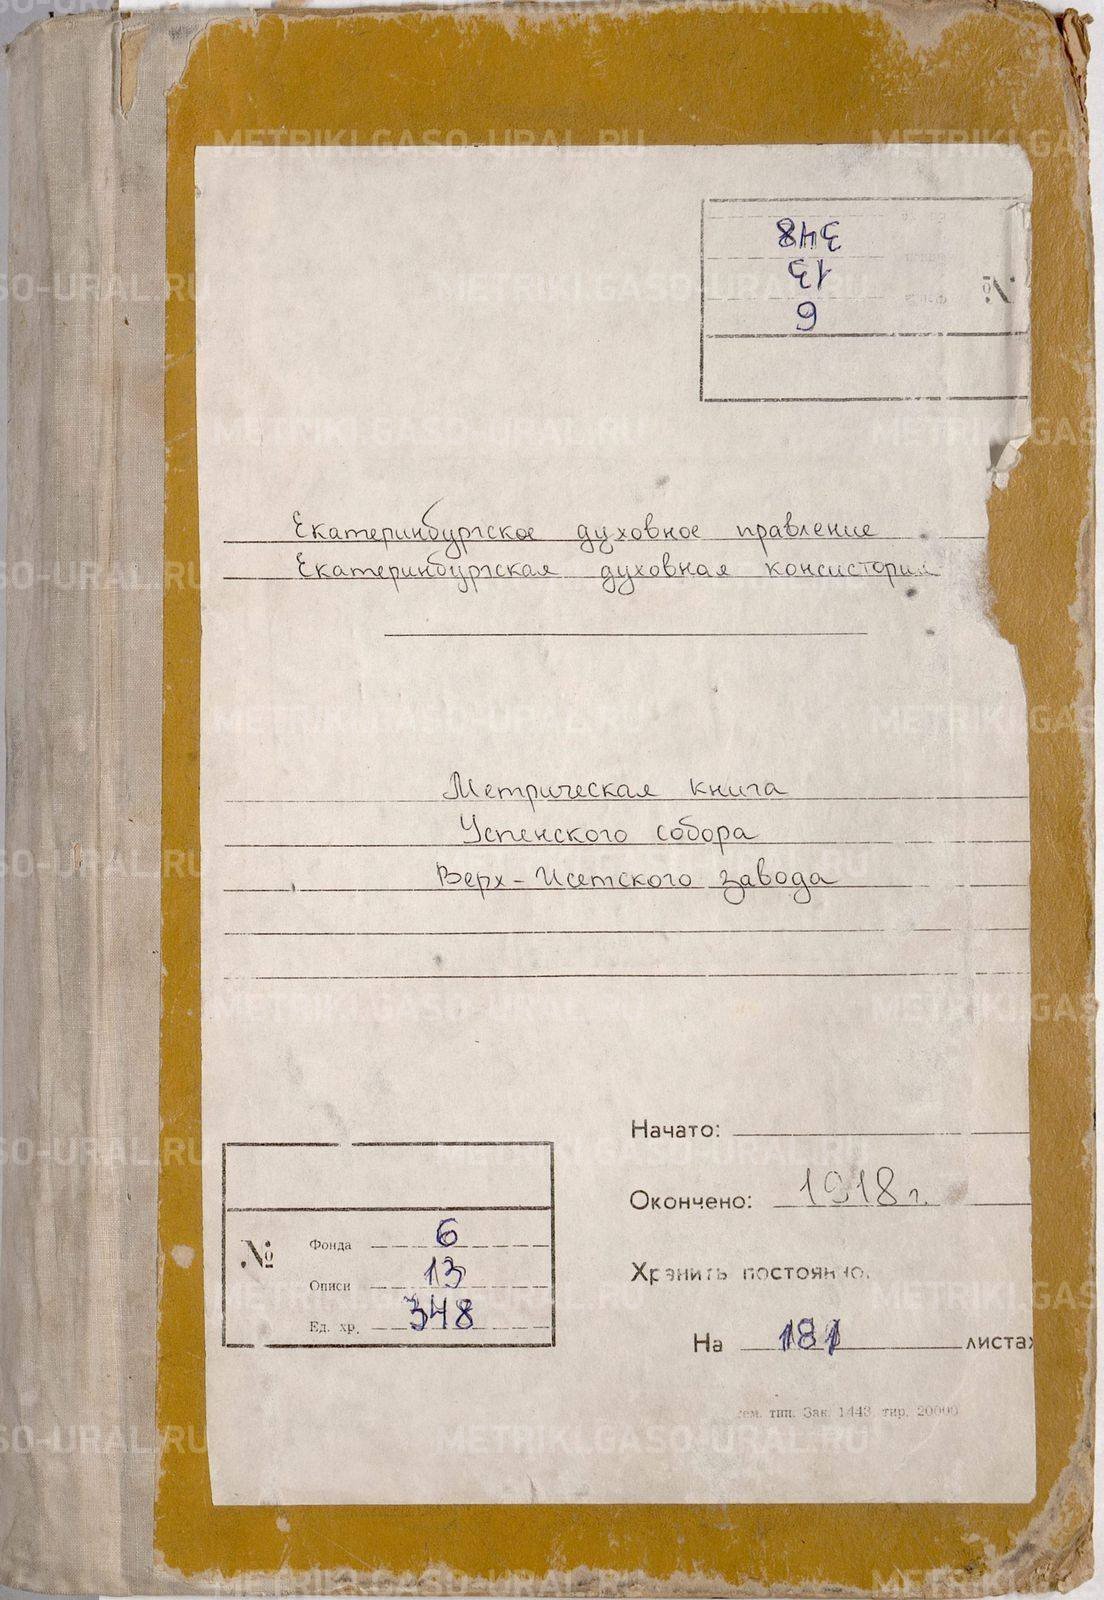 348
13
6
№
Екатеринбургское духовное правление
Екатеринбургская духовная консистория
Метрическая книга
Успенского собора
Верх-Исетского завода
Начато:
Окончено: 1918 г.
Хранить постоянно.
На 181 листах
№
Фонда 6
Описи 13
Ед. хр. 348
тип. Зак. 1443, тир. 20000
METRIKI.GASO-URAL.RU